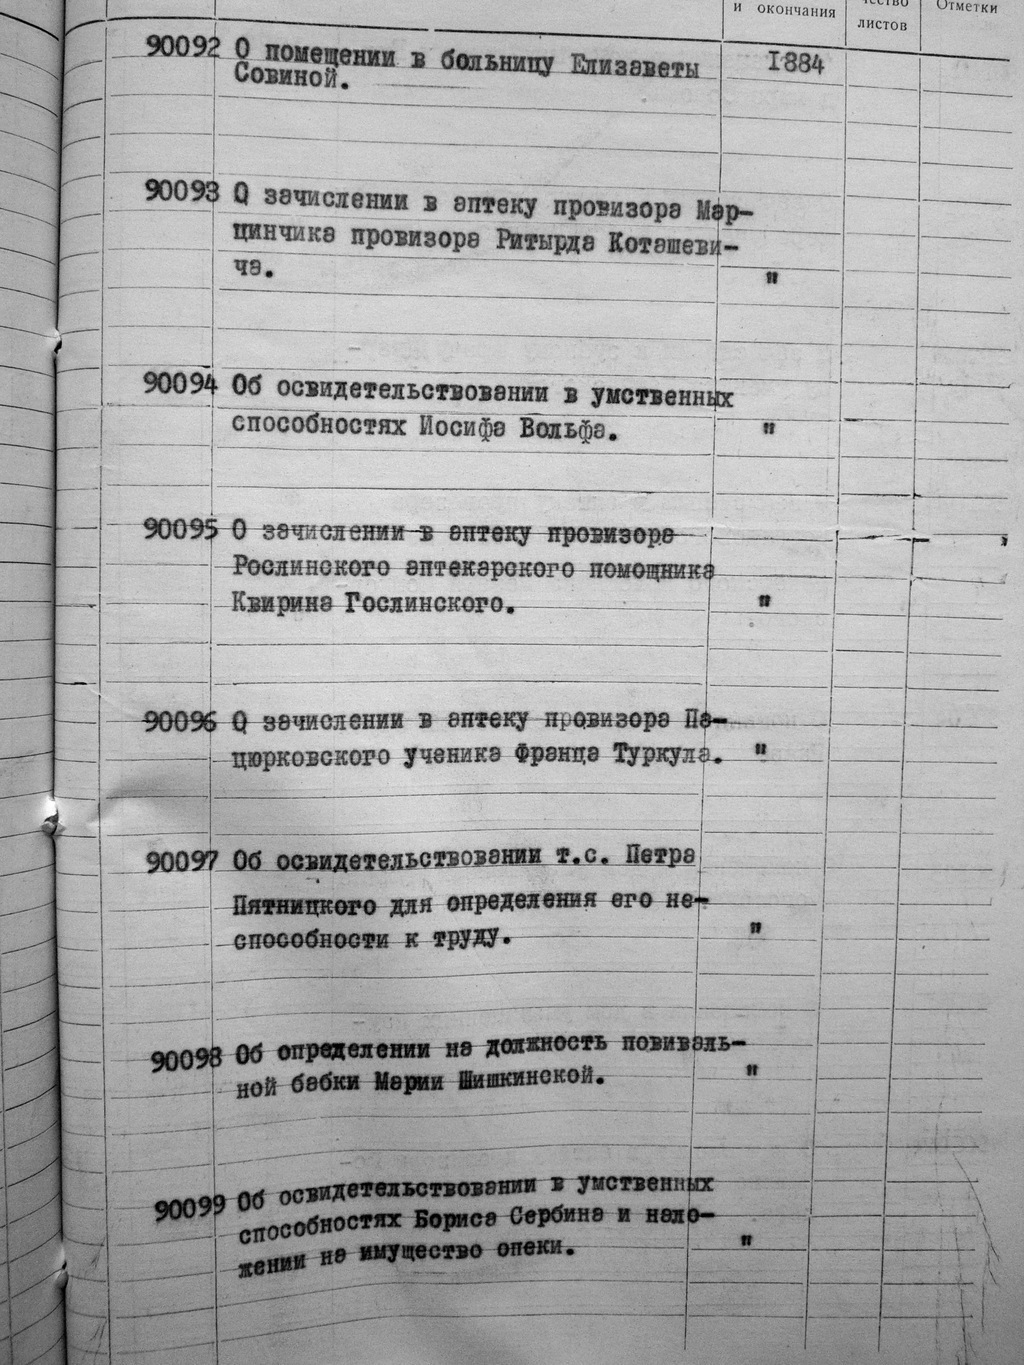 и окончания
чество
листов
Отметки
90092 О помещении в больницу Елизаветы 1884
Совиной.
90093 О зачислении в аптеку провизора Мар-
цинчика провизора Ритырда Коташеви-
ча. "
90094 Об освидетельствовании в умственных
способностях Иосифа Вольфа. "
90095 О зачислении в аптеку провизора
Рослинского аптекарского помощника
Квирина Гослинского. "
90096 О зачислении в аптеку провизора Па-
цюрковского ученика Франца Туркула. "
90097 Об освидетельствовании т.с. Петра
Пятницкого для определения его не-
способности к труду. "
90098 Об определении на должность повиваль-
ной бабки Марии Шишкинской. "
90099 Об освидетельствовании в умственных
способностях Бориса Сербина и нало-
жении на имущество опеки. "